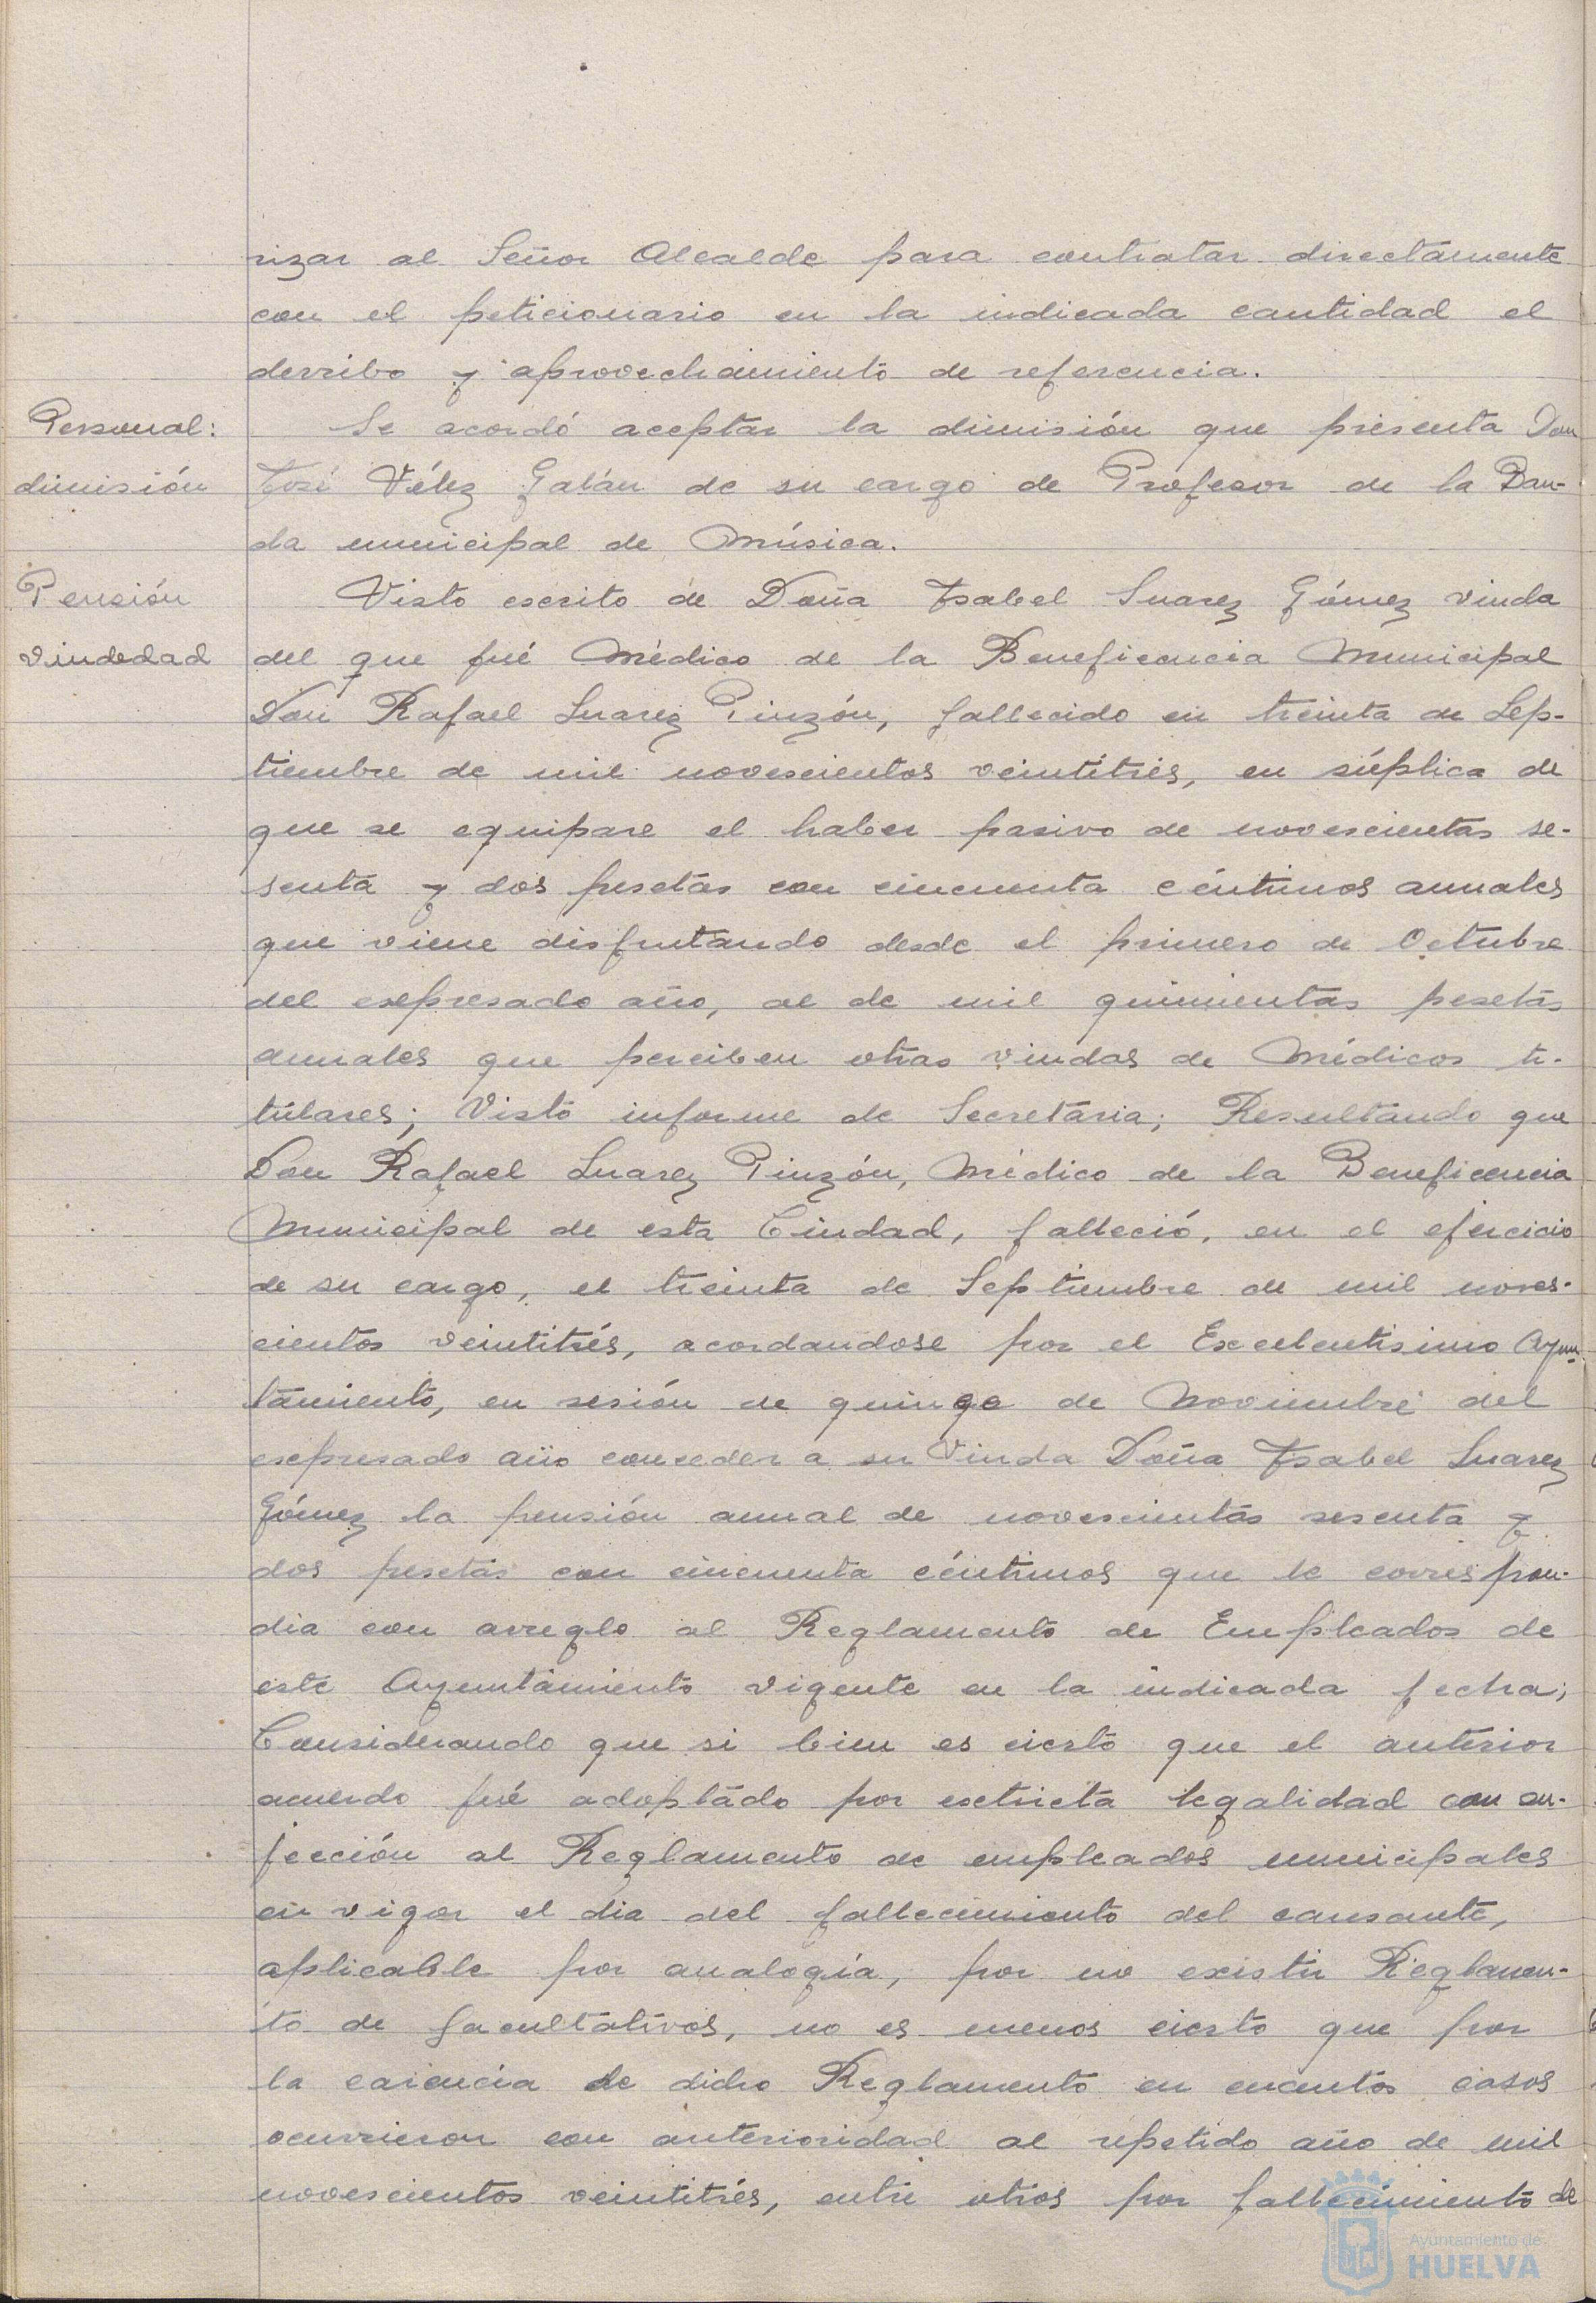 rizar al Señor Alcalde para contratar directamente
con el peticionario en la indicada cantidad el
derribo y aprovechamiento de referencia.
Personal: Se acordó aceptar la dimisión que presenta Don
dimisión José Vélez Galán de su cargo de Profesor de la Ban-
da municipal de Música.
Pensión Visto escrito de Doña Isabel Suarez Gómez viuda
viudedad del que fué Médico de la Beneficencia Municipal
Don Rafael Suarez Pinzón, fallecido en treinta de Sep-
tiembre de mil novescientos veintitrés, en súplica de
que se equipare el haber pasivo de novescientas se-
senta y dos pesetas con cincuenta céntimos anuales
que viene disfrutando desde el primero de Octubre
del expresado año, al de mil quinientas pesetas
anuales que perciben otras viudas de Médicos ti-
tulares; Visto informe de Secretaria; Resultando que
Don Rafael Suarez Pinzón, Médico de la Beneficencia
Municipal de esta Ciudad, falleció, en el ejercicio
de su cargo, el treinta de Septiembre de mil noves-
cientos veintitrés, acordandose por el Excelentisimo Ayun-
tamiento, en sesión de quince de Noviembre del
expresado año conceder a su Viuda Doña Isabel Suarez
Gómez la pensión anual de novescientas sesenta y
dos pesetas con cincuenta céntimos que le correspon-
dia con arreglo al Reglamento de Empleados de
este Ayuntamiento vigente en la indicada fecha;
Considerando que si bien es cierto que el anterior
acuerdo fué adoptado por estricta legalidad con su-
jección al Reglamento de empleados municipales
en vigor el dia del fallecimiento del causante,
aplicable por analogía, por no existir Reglamen-
to de facultativos, no es menos cierto que por
la carencia de dicho Reglamento en cuantos casos
ocurrieron con anterioridad al repetido año de mil
novescientos veintitrés, entre otros por fallecimiento de
Ayuntamiento de
HUELVA